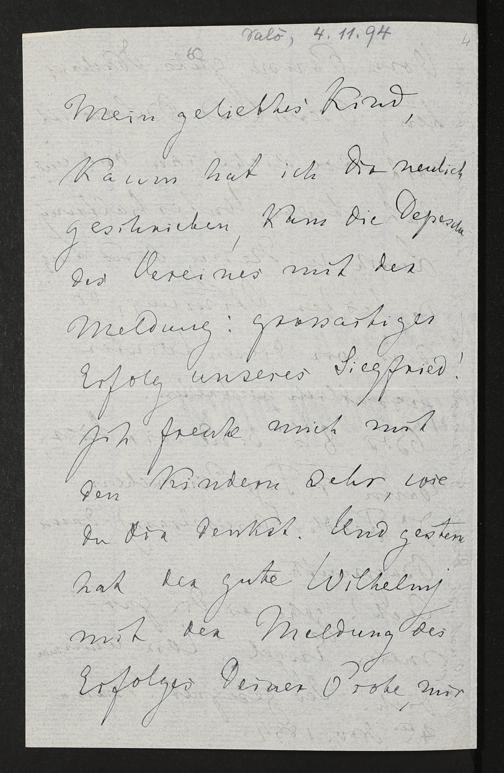 4.11.94
Mein geliebtes Kind,
Kaum hat ich Dir neulich
geschrieben, kam die Depesche
des Vereines mit der
Meldung: grossartiger
Erfolg unseres Siegfried!
Ich freute mich mit
den Kindern sehr, wie
du dir denkst. Und gestern
hat der gute Wilhelmj
mit der Meldung des
Erfolges Deiner Probe, mir